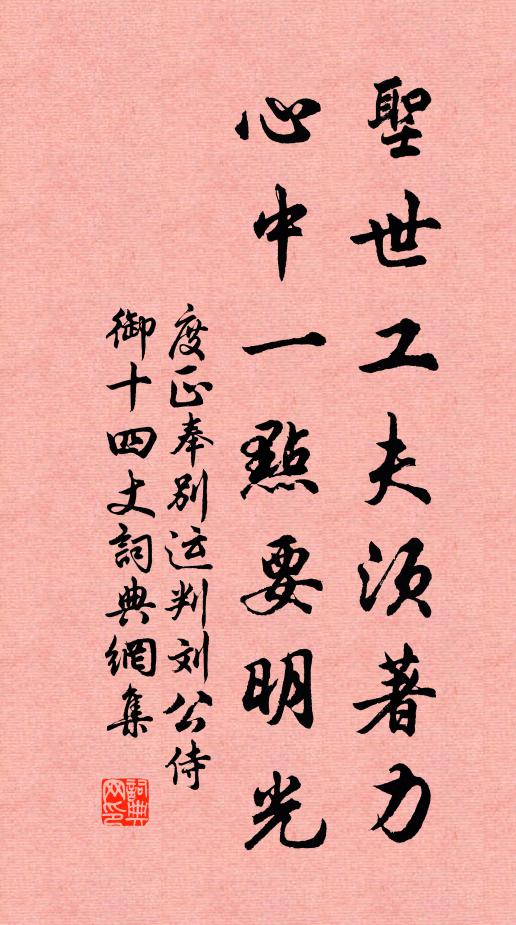 聖世工夫須著力
心中一點要明光
度正奉別运判刘公侍
御十四丈詞典網集
詞典
网印